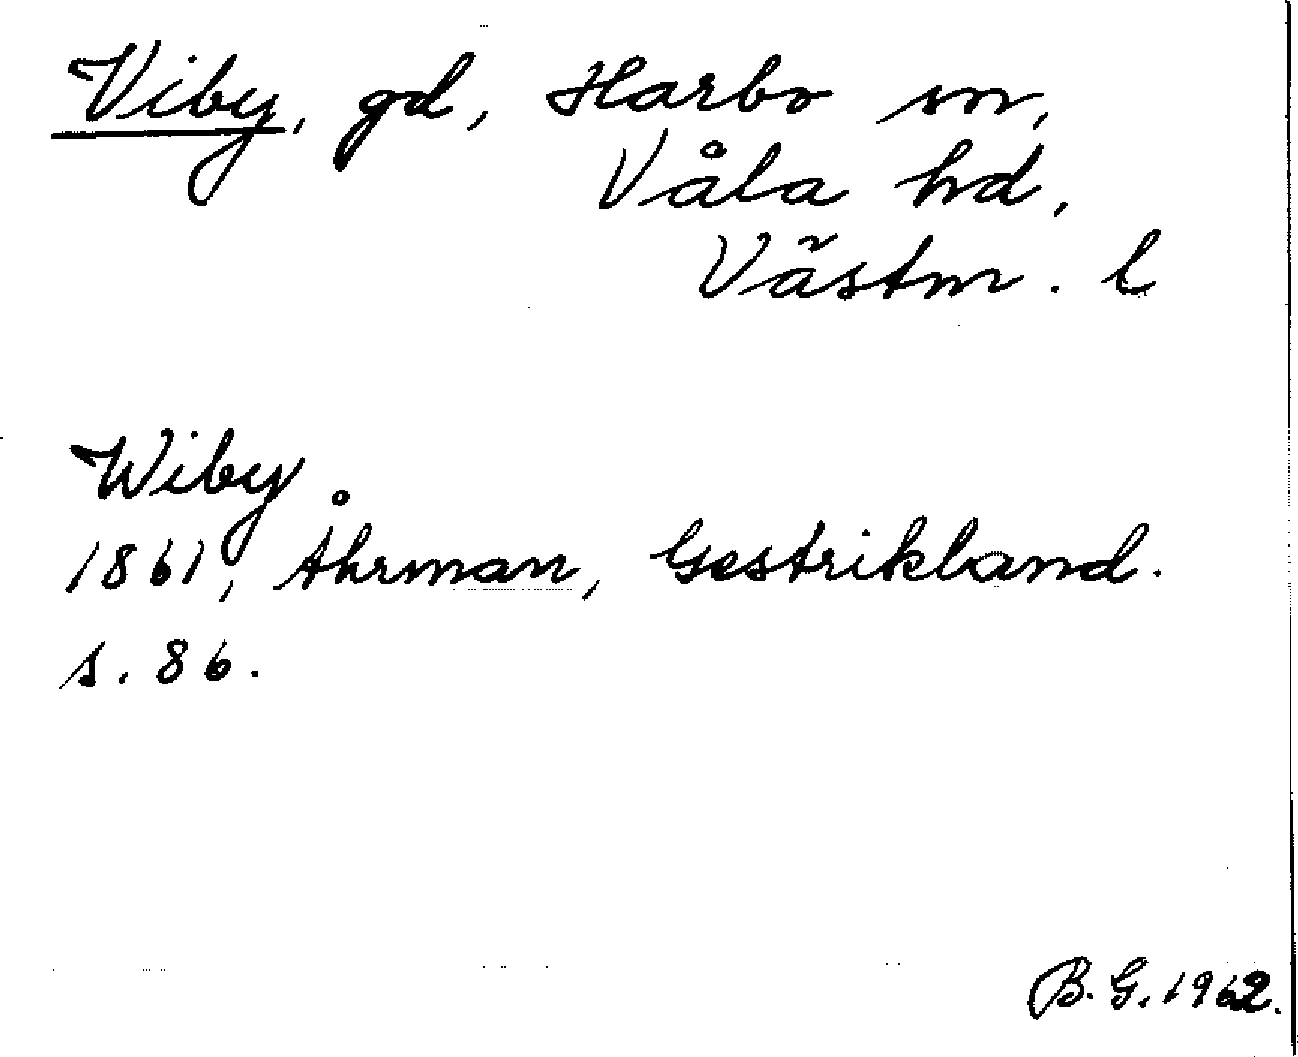 Viby, gd, Harbo sn,
Våla hd,
Västm. l
Wiby
1861, Åhrman, Gestrikland.
s. 86.
B. G. 1962.